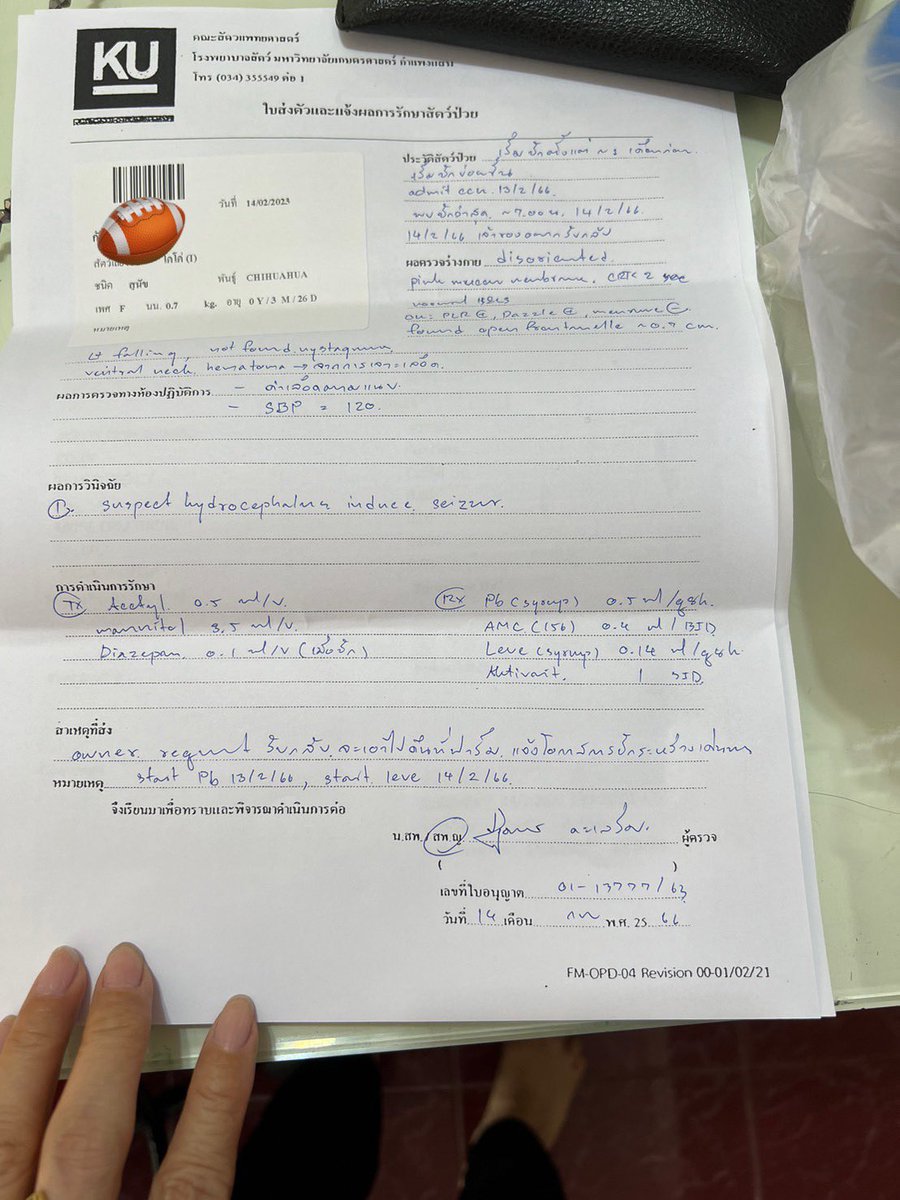 KU
คณะสัตวแพทยศาสตร์
โรงพยาบาลสัตว์ มหาวิทยาลัยเกษตรศาสตร์ กำแพงแสน
โทร (034) 355549 ต่อ 1
ใบส่งตัวและแจ้งผลการรักษาสัตว์ป่วย
วันที่ 14/02/2023
โกโก่ (I)
ชนิด สุนัข พันธุ์ CHIHUAHUA
เพศ F นน. 0.7 kg. อายุ 0 Y / 3 M / 26 D
หมายเหตุ
ประวัติสัตว์ป่วย เริ่มชักตั้งแต่ ~ 1 เดือนก่อน
เริ่มชักบ่อยขึ้น
admit ccu 13/2/66
พบชักล่าสุด ~7.00น. 14/2/66
14/2/66 เจ้าของอยากรับกลับ
ผลตรวจร่างกาย disoriented
pink mucous membrane, CRT< 2 sec
PLR, Dazzle, menace
found open frontanelle ~0.7 cm.
Lt falling, not found nystagmus
ventral neck hematoma → จากการเจาะเลือด
ผลการตรวจทางห้องปฏิบัติการ - ค่าเลือดตามแนบ
- SBP = 120
ผลการวินิจฉัย
suspect hydrocephalus induce seizur
การดำเนินการรักษา
Tx Acetyl 0.5 ml/v.
mannitol 3.5 ml/v.
Diazepam 0.1 ml/v (เมื่อชัก)
Rx Pb (syrup) 0.5 ml/q8h
AMC (156) 0.4 ml/BID
Leve (syrup) 0.14 ml/q8h
1 SID
สาเหตุที่ส่ง owner request รับกลับ จะเอาไปคืนที่ฟาร์ม แจ้งโอกาสการชักระหว่างเดินทาง
หมายเหตุ start Pb 13/2/66, start leve 14/2/66
จึงเรียนมาเพื่อทราบและพิจารณาดำเนินการต่อ
น.สพ./สพ.ญ. ผู้ตรวจ
( )
เลขที่ใบอนุญาต 01-13777/63
วันที่ 14 เดือน กพ พ.ศ. 25 66
FM-OPD-04 Revision 00-01/02/21